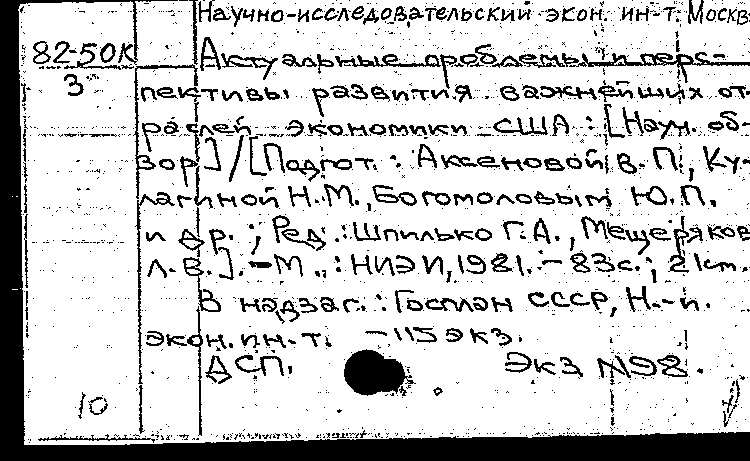 Научно-исследовательский экон. ин-т. Москв
82-50К Актуальные проблемы и перс-
3 пективы развития важнейших от-
раслей экономики США : [Науч. об-
зор] / [Подгот. : Аксеновой В. П., Ку-
лагиной Н. М., Богомоловым Ю. П.
и др. ; Ред. : Шпилько Г. А., Мещеряков
Л. В.]. - М., : НИЭИ, 1981. - 83 с. ; 21 см.
В надзаг. : Госплан СССР, Н.-и.
экон. ин-т. - 115 экз.
ДСП. Экз N98.
10